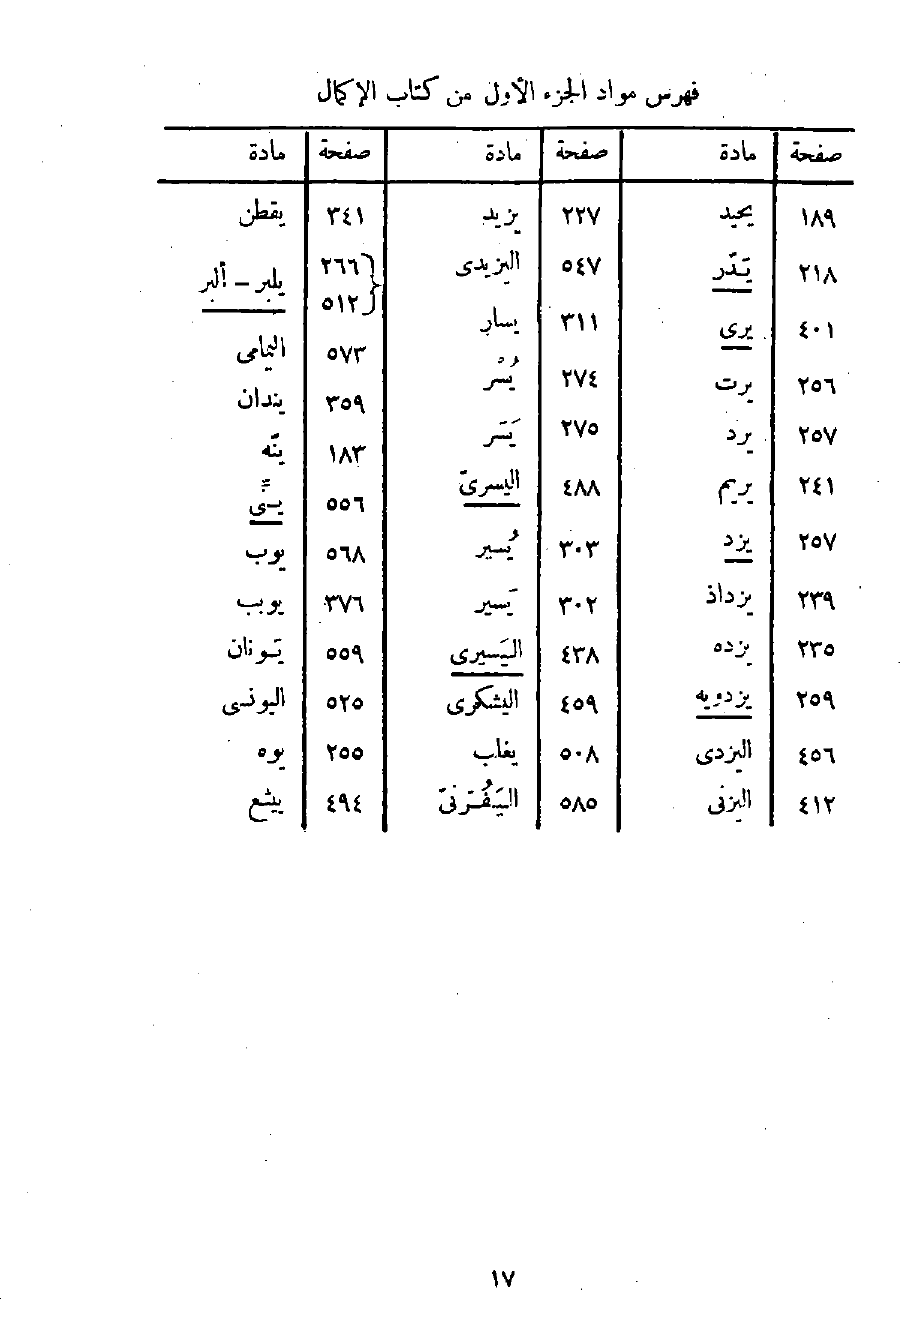 فهرس مواد الجزء الأول من كتاب الإكمال
صفحة مادة صفحة مادة صفحة مادة
١٨٩ يحيد ٢٢٧ يزيد ٣٤١ يقطن
٢١٨ يَدّر ٥٤٧ اليزيدى ٢٦٦ ٥١٢ يلبر – ألبر
٤٠١ يرى ٣١١ يسار ٥٧٣ اليمامى
٢٥٦ يرت ٢٧٤ يُسْر ٣٥٩ يندان
٢٥٧ يرد ٢٧٥ يَسَر ١٨٣ ينّه
٢٤١ يريم ٤٨٨ اليسرىّ ٥٥٦ ينّى
٢٥٧ يزد ٣٠٣ يُسير ٥٦٨ يوب
٢٣٩ يزداذ ٣٠٢ يَسير ٣٧٦ يوبب
٢٣٥ يزده ٤٣٨ اليَسيرى ٥٥٩ يَونان
٢٥٩ يزدويه ٤٥٩ اليشكرى ٥٢٥ اليونسى
٤٥٦ اليزدى ٥٠٨ يغلب ٢٥٥ يوه
٤١٢ اليزنى ٥٨٥ اليَفُرَنىّ ٤٩٤ ييثع
١٧